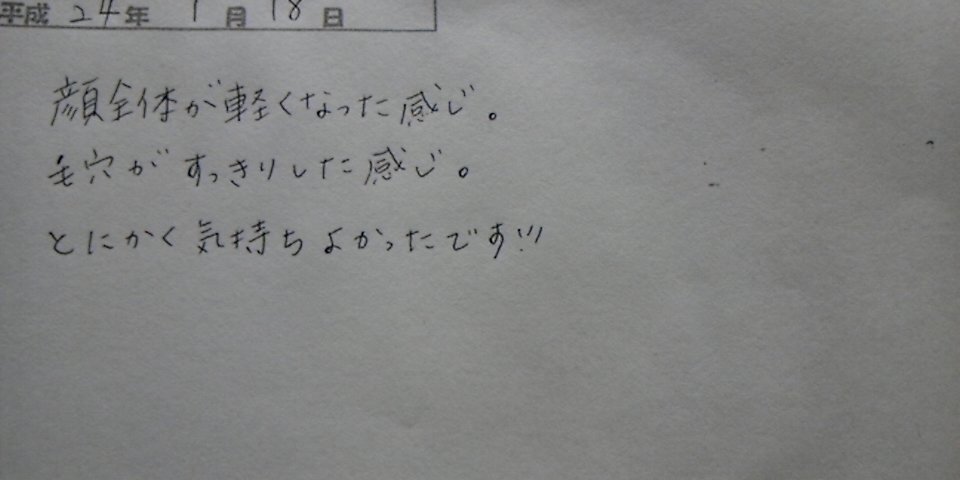 平成 24年 1月 18日
顔全体が軽くなった感じ。
毛穴がすっきりした感じ。
とにかく気持ちよかったです!!!